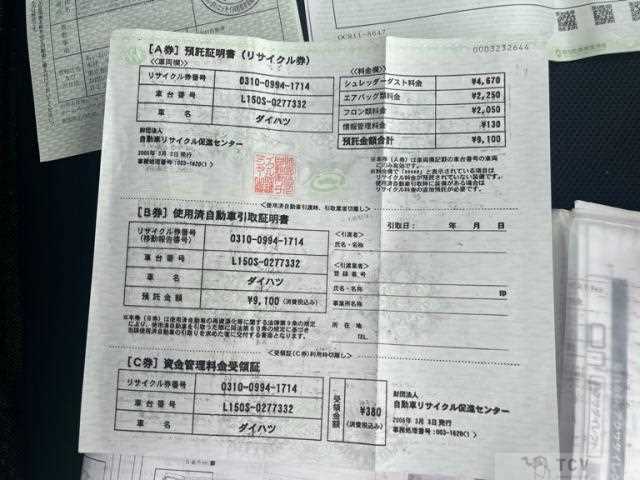 OCR11-8647
0003232644
[A券] 預託証明書 (リサイクル券)
<<車両欄>>
リサイクル券番号 0310-0994-1714
車台番号 L150S-0277332
車名 ダイハツ
財団法人
自動車リサイクル促進センター
2005年 3月 3日発行
事務処理番号:003-1620(1)
<<料金欄>>
シュレッダーダスト料金 ¥4,670
エアバッグ類料金 ¥2,250
フロン類料金 ¥2,050
情報管理料金 ¥130
預託金額合計 ¥9,100
<使用済自動車引渡時、引取業者切離し>
[B券] 使用済自動車引取証明書
リサイクル券番号
(移動報告番号) 0310-0994-1714
車台番号 L150S-0277332
車名 ダイハツ
預託金額 ¥9,100 (消費税込み)
引取日: 年 月 日
<引渡者>
氏名・名称
<引取業者>
登録番号
氏名・名称 印
事業所名称
所在地
TEL.
<受領証(C券)利用時切離し>
[C券] 資金管理料金受領証
リサイクル券番号 0310-0994-1714
車台番号 L150S-0277332
車名 ダイハツ
受領金額 ¥380
(消費税込み)
財団法人
自動車リサイクル促進センター
2005年 3月 3日発行
事務処理番号:003-1620(1)
TCV